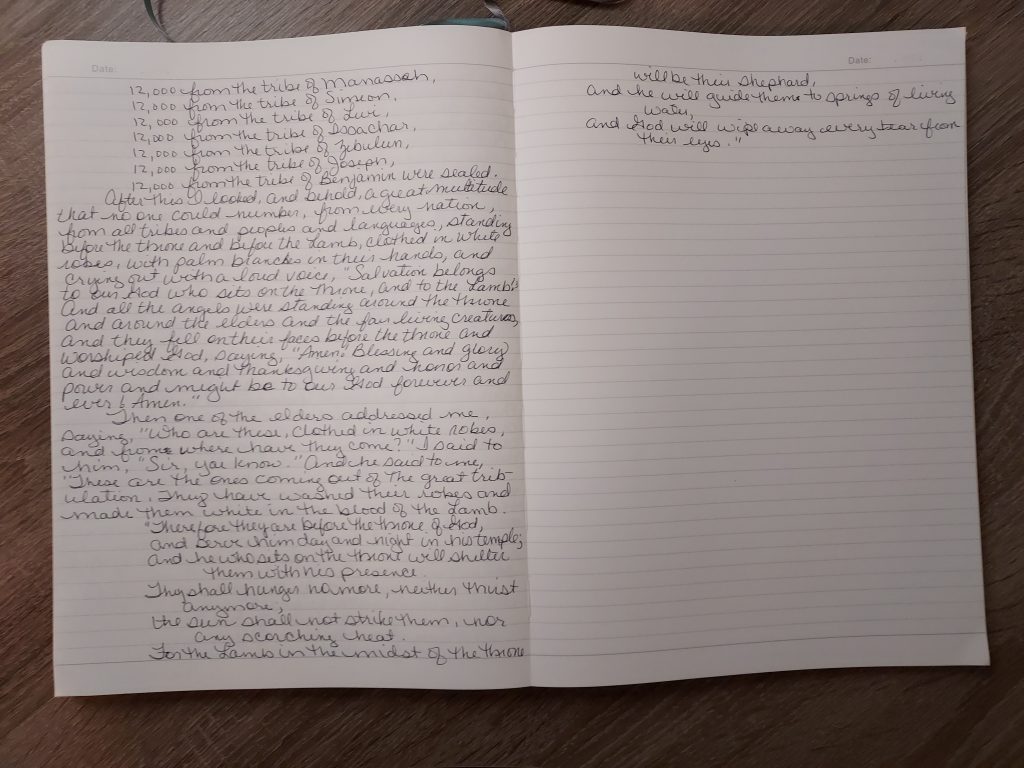 Date:
12,000 from the tribe of Manasseh,
12,000 from the tribe of Simeon,
12,000 from the tribe of Levi,
12,000 from the tribe of Issachar,
12,000 from the tribe of Zebulun,
12,000 from the tribe of Joseph,
12,000 from the tribe of Benjamin were sealed.
After this I looked, and behold, a great multitude
that no one could number, from every nation,
from all tribes and peoples and languages, standing
before the throne and before the Lamb, clothed in white
robes, with palm branches in their hands, and
crying out with a loud voice, "Salvation belongs
to our God who sits on the throne, and to the Lamb!"
And all the angels were standing around the throne
and around the elders and the four living creatures,
and they fell on their faces before the throne and
worshiped God, saying, "Amen! Blessing and glory
and wisdom and thanksgiving and honor and
power and might be to our God forever and
ever! Amen."
Then one of the elders addressed me,
saying, "Who are these, clothed in white robes,
and from where have they come?" I said to
him, "Sir, you know." And he said to me,
"These are the ones coming out of the great trib-
ulation. They have washed their robes and
made them white in the blood of the Lamb.
"Therefore they are before the throne of God,
and serve him day and night in his temple;
and he who sits on the throne will shelter
them with his presence.
They shall hunger no more, neither thirst
anymore;
the sun shall not strike them, nor
any scorching heat.
For the Lamb in the midst of the throne
Date:
will be their shephard,
and he will guide them to springs of living
water,
and God will wipe away every tear from
their eyes."